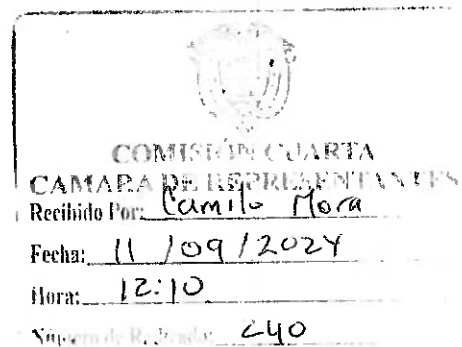 COMISIÓN CUARTA
CAMARA DE REPRESENTANTES
Recibido Por: Camilo Mora
Fecha: 11 / 09 / 2024
Hora: 12:10
Número de Radicado: 240